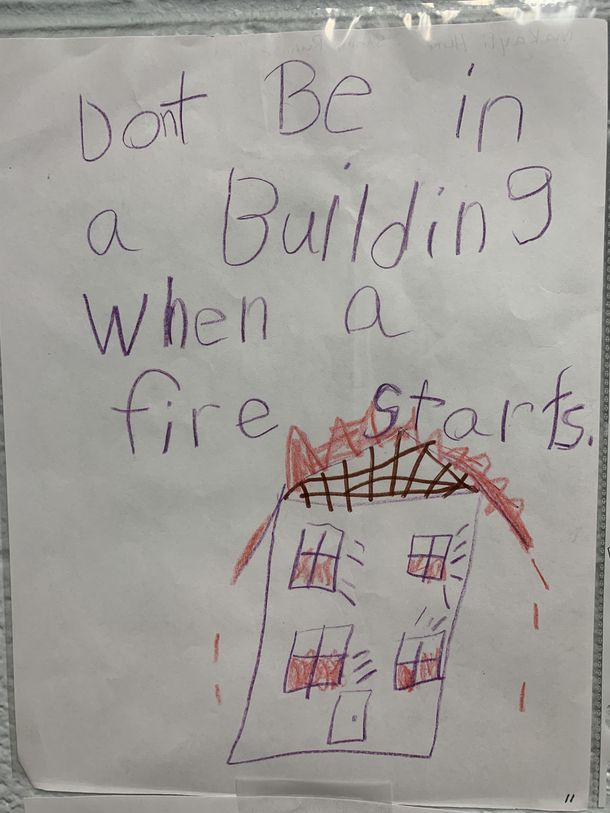 Dont Be in
a Building
when a
fire starts.
11